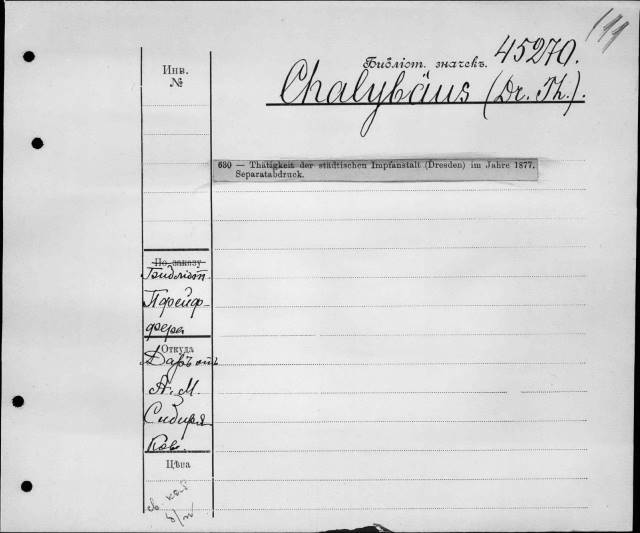 Инв.
№
Библіот. значекъ. 45270.
Chalybäus (Dr. Th.).
630 — Thätigkeit der städtischen Impfanstalt (Dresden) im Jahre 1877.
Separatabdruck.
По заказу
Библіот
Пфейф-
фера
Откуда
Даръ отъ
А. М.
Сибиря-
Ков.
Цѣна